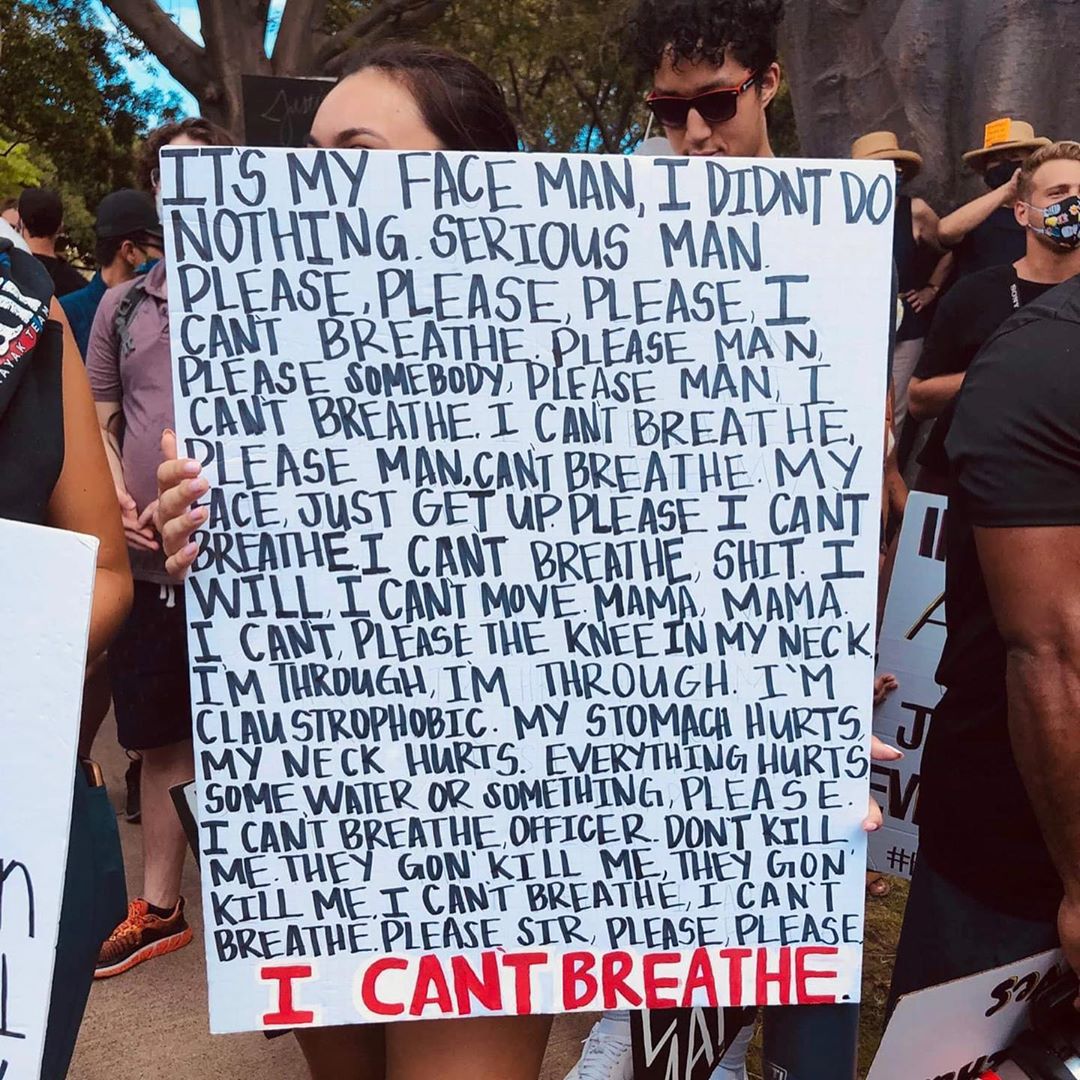 ITS MY FACE MAN, I DIDNT DO
NOTHING SERIOUS MAN.
PLEASE, PLEASE, PLEASE, I
CAN'T BREATHE. PLEASE MAN,
PLEASE SOMEBODY, PLEASE MAN, I
CAN'T BREATHE. I CAN'T BREATHE,
PLEASE MAN, CAN'T BREATHE. MY
FACE, JUST GET UP. PLEASE I CAN'T
BREATHE. I CAN'T BREATHE, SHIT. I
WILL, I CAN'T MOVE. MAMA, MAMA.
I CAN'T, PLEASE THE KNEE IN MY NECK
I'M THROUGH, I'M THROUGH. I'M
CLAUSTROPHOBIC. MY STOMACH HURTS,
MY NECK HURTS. EVERYTHING HURTS
SOME WATER OR SOMETHING, PLEASE.
I CAN'T BREATHE, OFFICER. DON'T KILL
ME. THEY GON' KILL ME, THEY GON'
KILL ME, I CAN'T BREATHE, I CAN'T
BREATHE. PLEASE SIR, PLEASE, PLEASE
I CAN'T BREATHE.
SONY